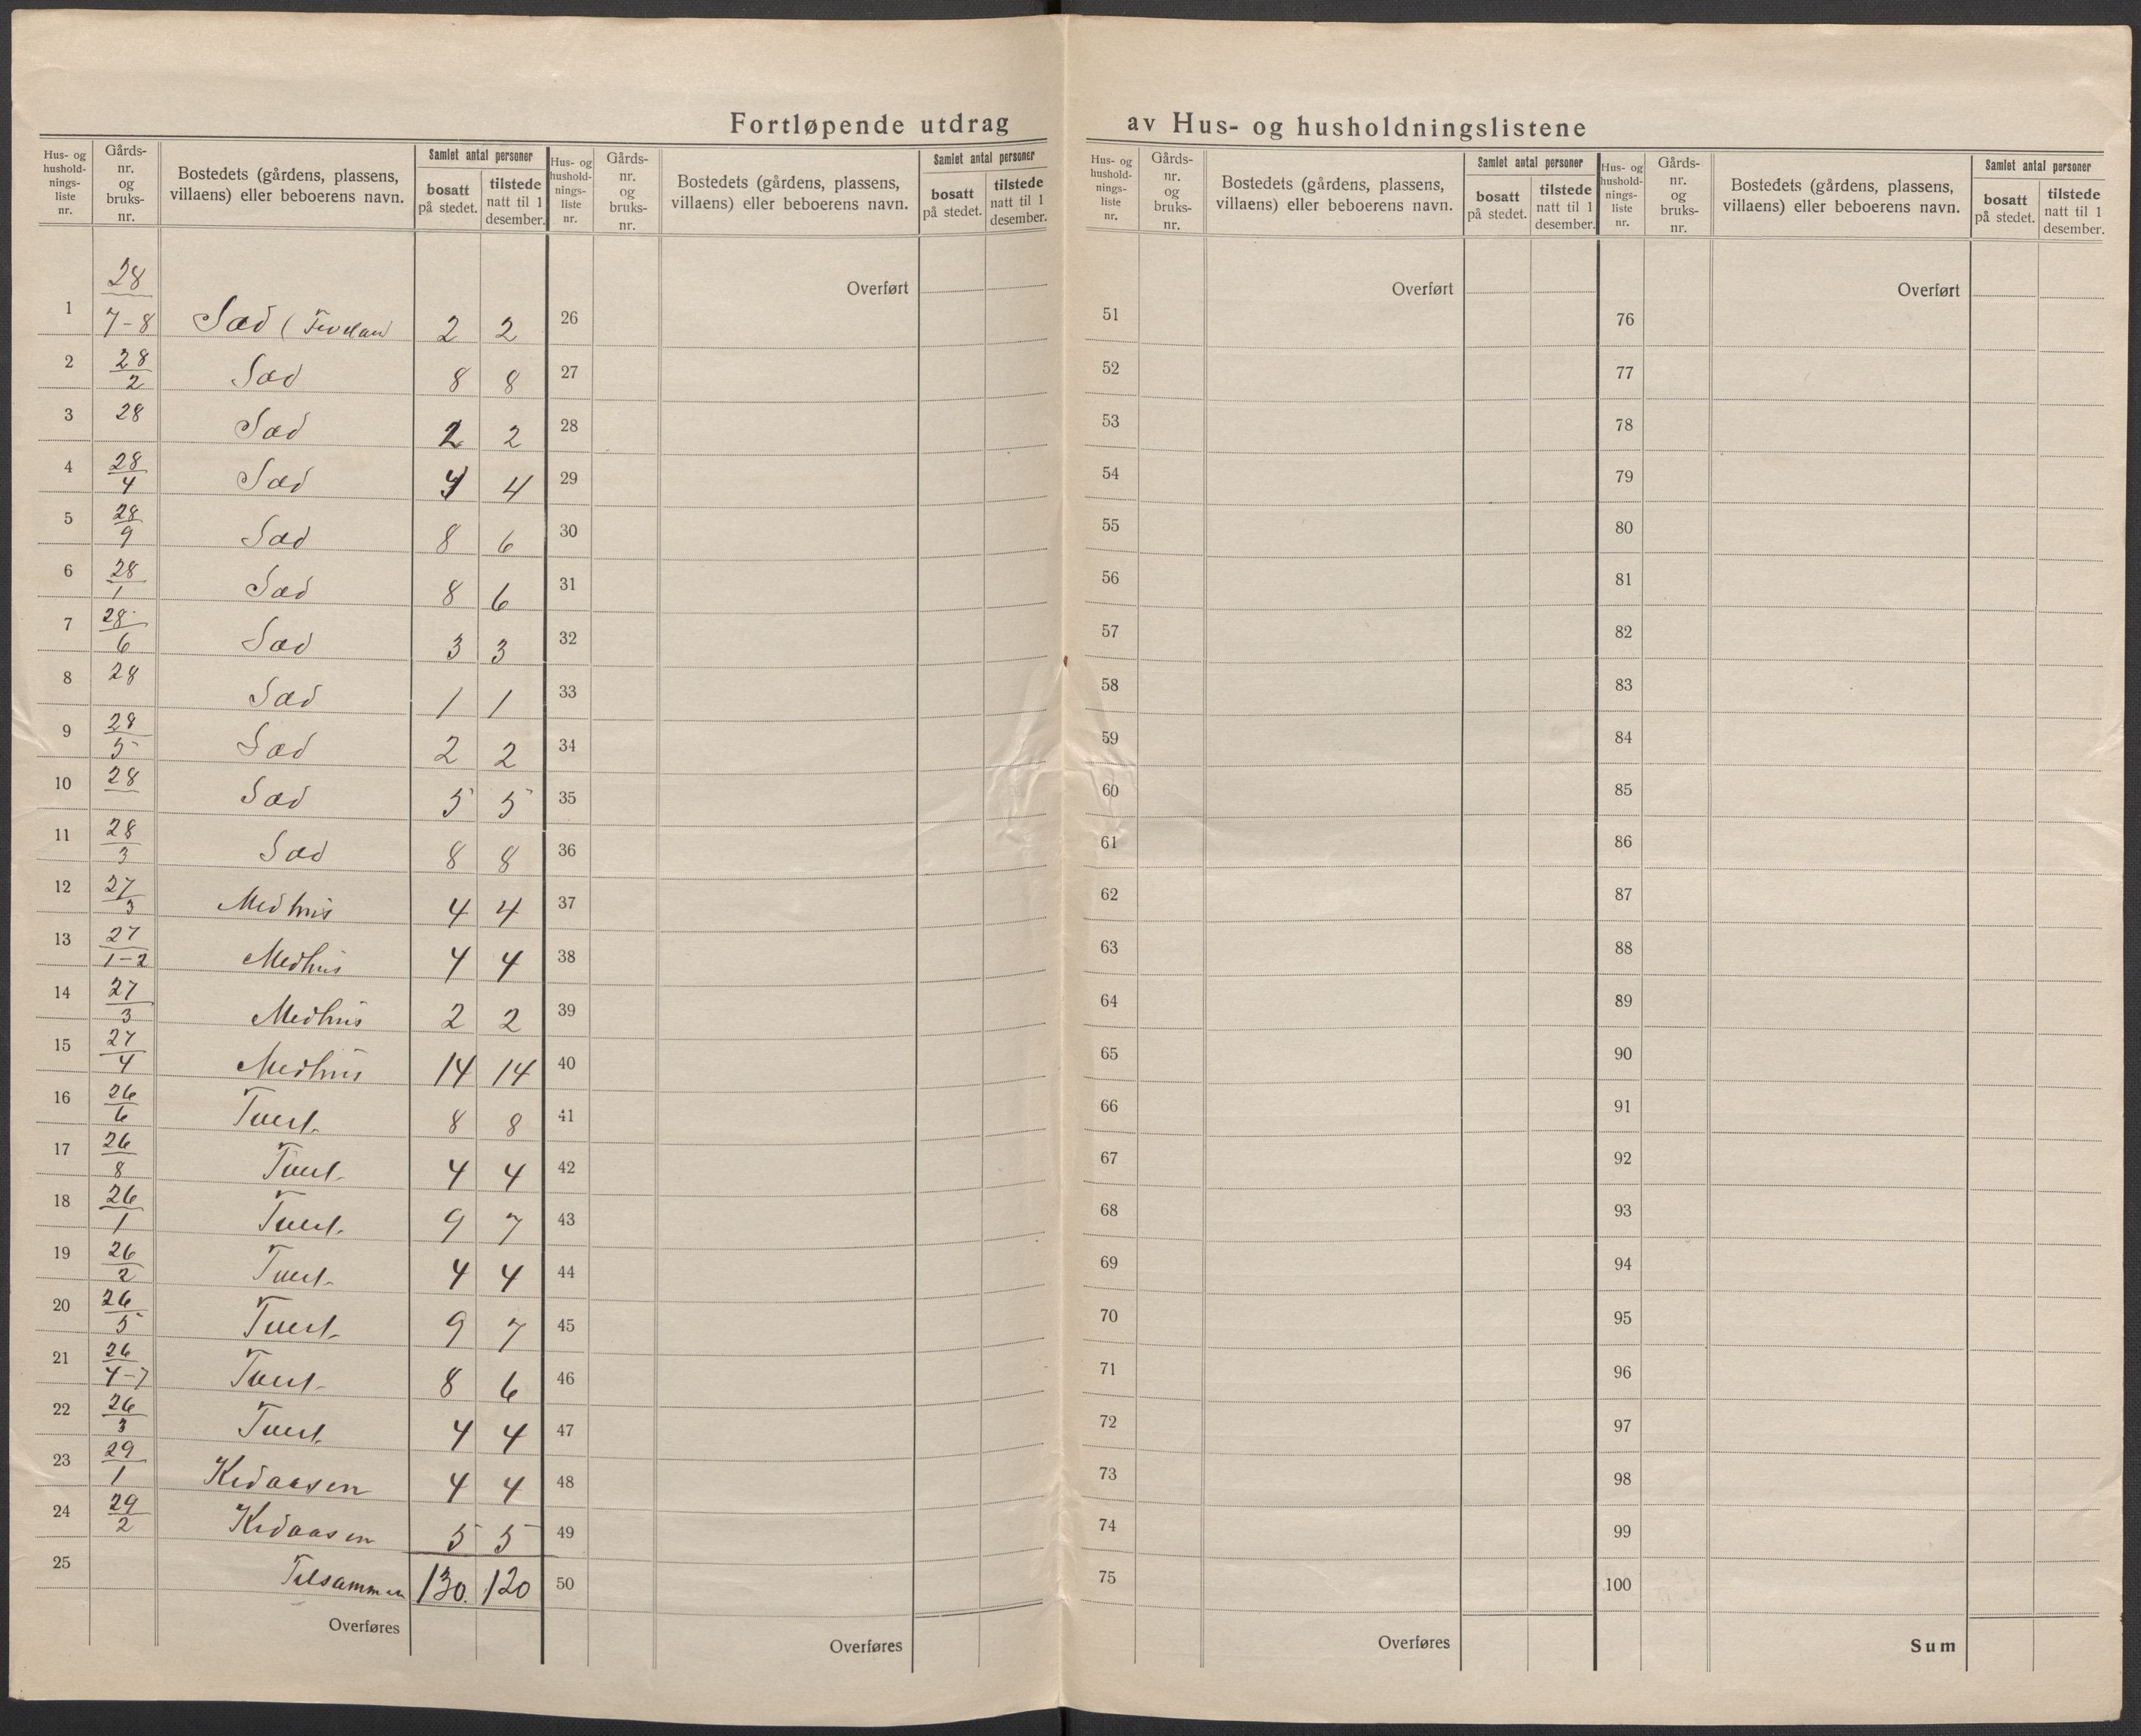 Fortløpende utdrag av Hus- og husholdningslistene
Hus- og hushold-nings-liste nr. Gårds-nr. og bruks-nr. Bostedets (gårdens, plassens, villaens) eller beboerens navn. Samlet antal personer bosatt på stedet. tilstede natt til 1 desember.
Hus- og hushold-nings-liste nr. Gårds-nr. og bruks-nr. Bostedets (gårdens, plassens, villaens) eller beboerens navn. Samlet antal personer bosatt på stedet. tilstede natt til 1 desember.
Hus- og hushold-nings-liste nr. Gårds-nr. og bruks-nr. Bostedets (gårdens, plassens, villaens) eller beboerens navn. Samlet antal personer bosatt på stedet. tilstede natt til 1 desember.
Hus- og hushold-nings-liste nr. Gårds-nr. og bruks-nr. Bostedets (gårdens, plassens, villaens) eller beboerens navn. Samlet antal personer bosatt på stedet. tilstede natt til 1 desember.
Overført Overført Overført
1 28/7-8 Sæd 2 2 26 51 76
2 28/2 Sæd 8 8 27 52 77
3 28 Sæd 2 2 28 53 78
4 28/4 Sæd 4 4 29 54 79
5 28/9 Sæd 8 6 30 55 80
6 28/1 Sæd 8 6 31 56 81
7 28/6 Sæd 3 3 32 57 82
8 28 Sæd 1 1 33 58 83
9 28/5 Sæd 2 2 34 59 84
10 28 Sæd 5 5 35 60 85
11 28/3 Sæd 8 8 36 61 86
12 27/3 Medhus 4 4 37 62 87
13 27/1-2 Medhus 4 4 38 63 88
14 27/3 Medhus 2 2 39 64 89
15 27/4 Medhus 14 14 40 65 90
16 26/6 Tveit 8 8 41 66 91
17 26/8 Tveit 4 4 42 67 92
18 26/1 Tveit 9 7 43 68 93
19 26/2 Tveit 4 4 44 69 94
20 26/5 Tveit 9 7 45 70 95
21 26/4-7 Tveit 8 6 46 71 96
22 26/3 Tveit 4 4 47 72 97
23 29/1 Kvdaasen 4 4 48 73 98
24 29/2 Kvdaasen 5 5 49 74 99
25 Tilsammen 130. 120 50 75 100
Overføres Overføres Overføres Sum